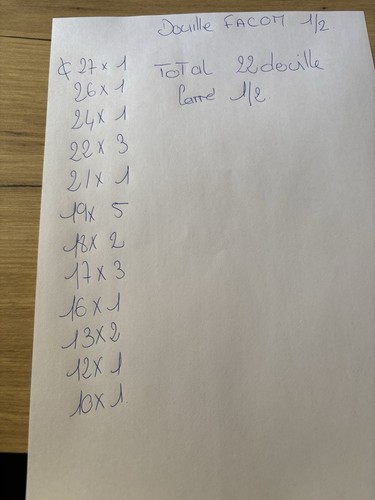 Douille FACOM 1/2.
27 x 1
TOTAL 22 douille
26 x 1
Carré 1/2.
24 x 1
22 x 3
21 x 1
19x 5
18x 2
17 x 3
16 x 1
13x2
12x 1
10x 1.